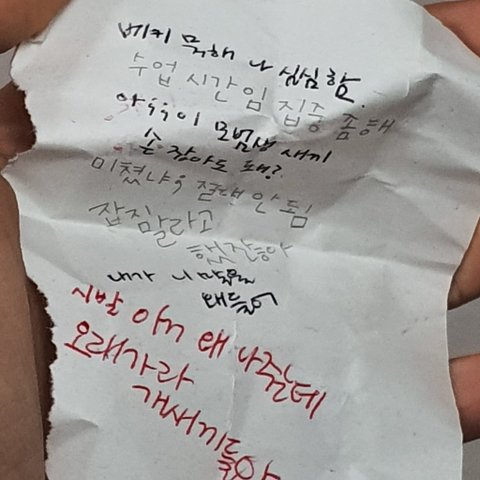 베키 뭑해 나 심심함.
수업 시간임 집중 좀해
아휴이 모범생 새끼
손 잡아도 돼?
미쳤냐 절대 안 됨
잡지말라고
했잖아
내가 니 마음을
왜들어
시발 이거 왜 나줬는데
오래가라
개새끼들아